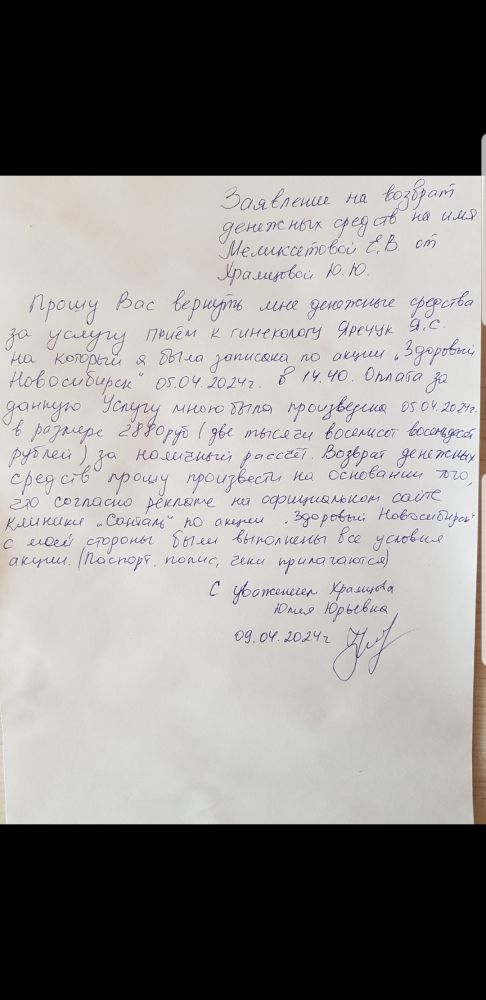 Заявление на возврат
денежных средств на имя
Меликсетовой Е.В. от
Храмцовой Ю.Ю.
Прошу Вас вернуть мне денежные средства
за услугу приём к гинекологу Яречук Я.С.
на который я была записана по акции „Здоровый
Новосибирск" 05.04.2024г. в 14.40. Оплата за
данную услугу мною была произведена 05.04.2024г.
в размере 2880руб (две тысячи восемьсот восемьдесят
рублей) за наличный рассчёт. Возврат денежных
средств прошу произвести на основании того,
что согласно рекламе на официальном сайте
клиники „Санталь" по акции „Здоровый Новосибирск"
с моей стороны были выполнены все условия
акции. (Паспорт, полис, чеки прилагаются)
С уважением Храмцова
Юлия Юрьевна
09.04.2024г